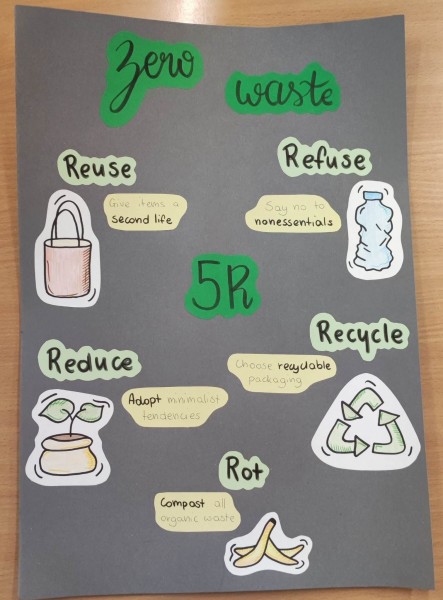 Zero waste
Reuse
Give items a
second life
Refuse
Say no to
nonessentials
5R
Reduce
Adopt minimalist
tendencies
Recycle
Choose recyclable
packaging
Rot
Compost all
organic waste